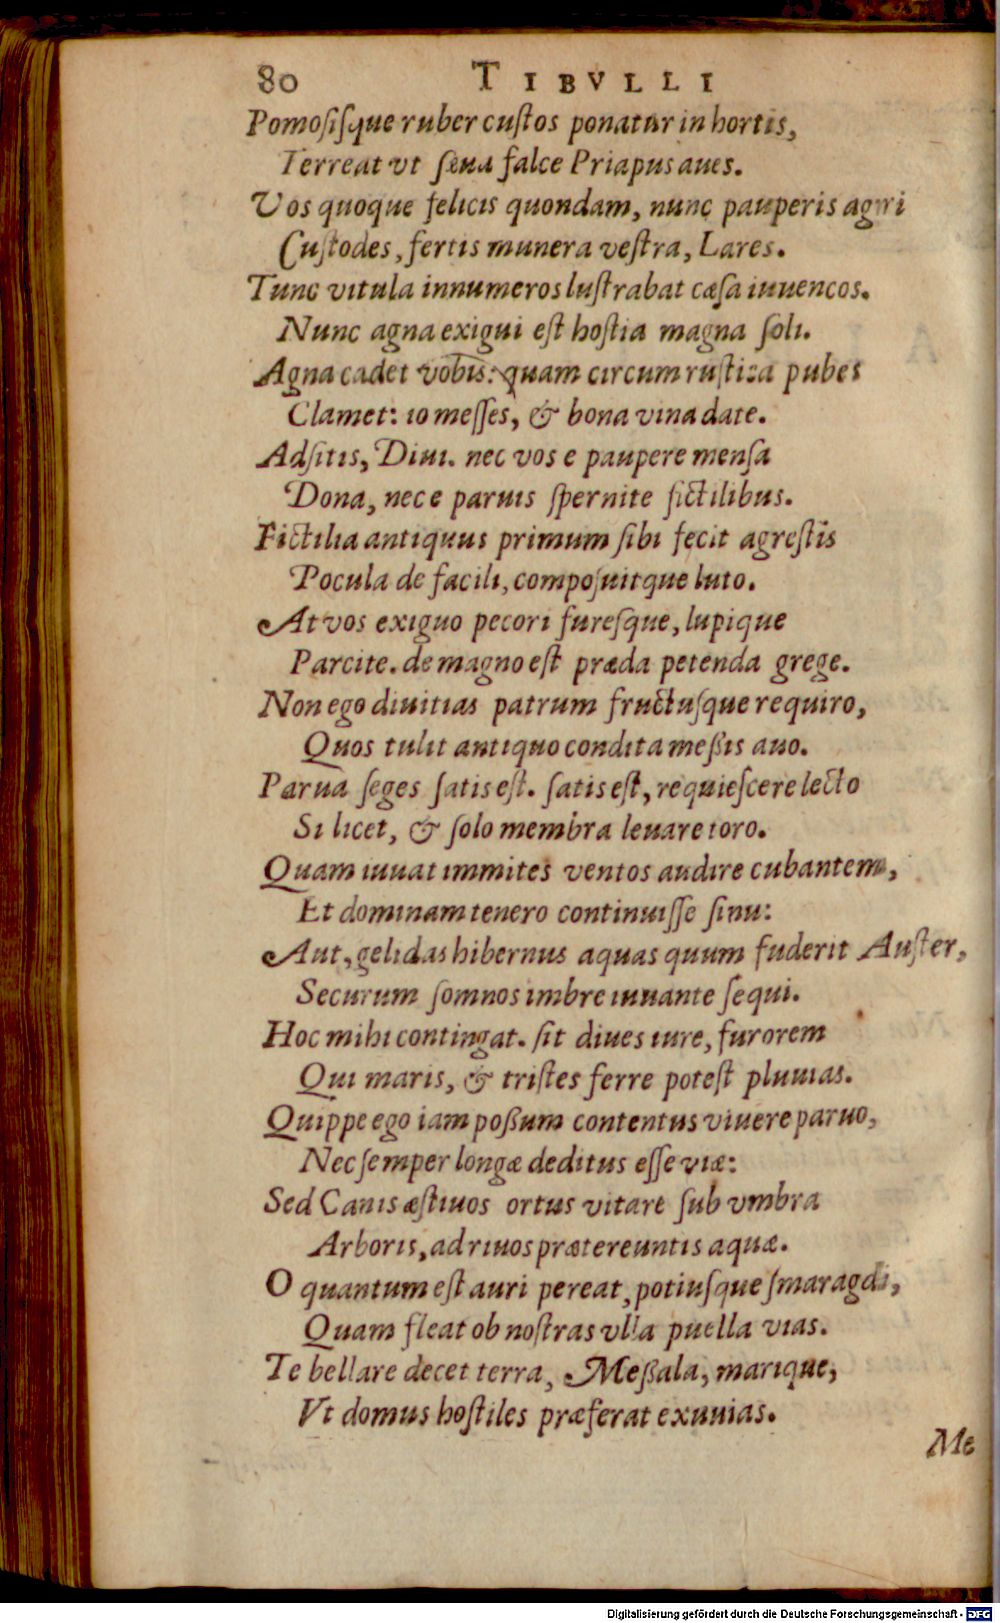 80 TIBVLLI
Pomosisque ruber custos ponatur in hortis,
Terreat vt sæua falce Priapus aues.
Vos quoque felicis quondam, nunc pauperis agri
Custodes, fertis munera vestra, Lares.
Tunc vitula innumeros lustrabat cæsa iuuencos.
Nunc agna exigui est hostia magna soli.
Agna cadet vobis: quam circum rustica pubes
Clamet: io messes, & bona vina date.
Adsitis, Diui. nec vos e paupere mensa
Dona, nec e paruis spernite fictilibus.
Fictilia antiquus primum sibi fecit agrestis
Pocula de facili, composuitque luto.
At vos exiguo pecori furesque, lupique
Parcite. de magno est præda petenda grege.
Non ego diuitias patrum fructusque requiro,
Quos tulit antiquo condita meßis auo.
Parua seges satis est. satis est, requiescere lecto
Si licet, & solo membra leuare toro.
Quam iuuat immites ventos audire cubantem,
Et dominam tenero continuisse sinu:
Aut, gelidas hibernus aquas quum fuderit Auster,
Securum somnos imbre iuuante sequi.
Hoc mihi contingat. sit diues iure, furorem
Qui maris, & tristes ferre potest pluuias.
Quippe ego iam poßum contentus viuere paruo,
Nec semper longæ deditus esse viæ:
Sed Canis æstiuos ortus vitare sub vmbra
Arboris, ad riuos prætereuntis aquæ.
O quantum est auri pereat, potiusque smaragdi,
Quam fleat ob nostras vlla puella vias.
Te bellare decet terra, Meßala, marique,
Vt domus hostiles præferat exuuias.
Me
Digitalisierung gefördert durch die Deutsche Forschungsgemeinschaft - DFG